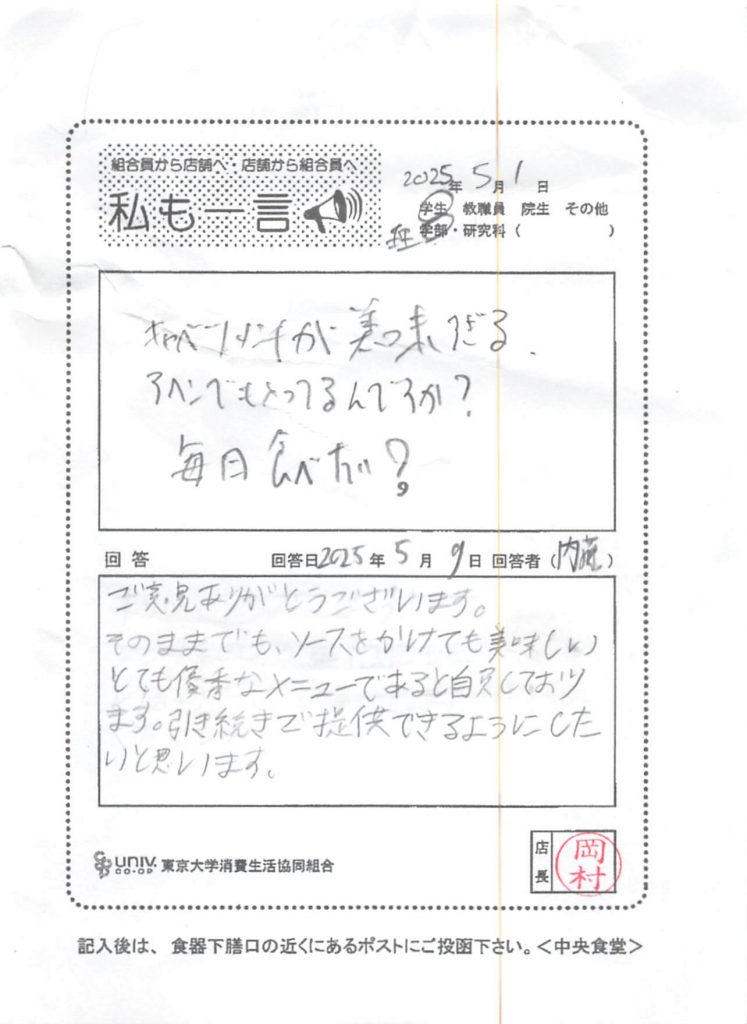 組合員から店舗へ・店舗から組合員へ
私も一言
2025年 5月 1日
学生 教職員 院生 その他
学部・研究科（ ）
キャベツメンチが美味すぎる、
アヘンでもとってるんですか？
毎日食べたい？
回答 回答日2025年 5月 9日 回答者（内藤）
ご意見ありがとうございます。
そのままでも、ソースをかけても美味しい
とても優秀なメニューであると自負しており
ます。引き続きご提供できるようにした
いと思います。
UNIV. CO-OP 東京大学消費生活協同組合
店長 岡村
記入後は、食器下膳口の近くにあるポストにご投函下さい。＜中央食堂＞